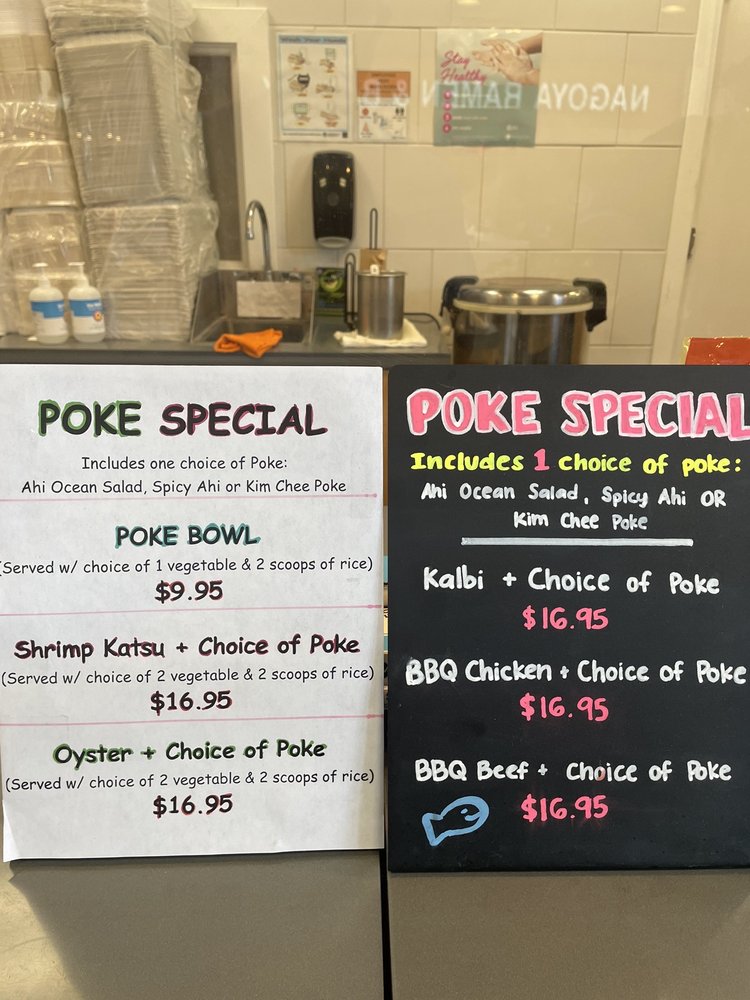 Wash Your Hands
Stay
Healthy
NAGOYA RAMEN &
POKE SPECIAL
Includes one choice of Poke:
Ahi Ocean Salad, Spicy Ahi or Kim Chee Poke
POKE BOWL
(Served w/ choice of 1 vegetable & 2 scoops of rice)
$9.95
Shrimp Katsu + Choice of Poke
(Served w/ choice of 2 vegetable & 2 scoops of rice)
$16.95
Oyster + Choice of Poke
(Served w/ choice of 2 vegetable & 2 scoops of rice)
$16.95
POKE SPECIAL
Includes 1 choice of poke:
Ahi Ocean Salad, Spicy Ahi OR
Kim Chee Poke
Kalbi + Choice of Poke
$16.95
BBQ Chicken + Choice of Poke
$16.95
BBQ Beef + Choice of Poke
$16.95